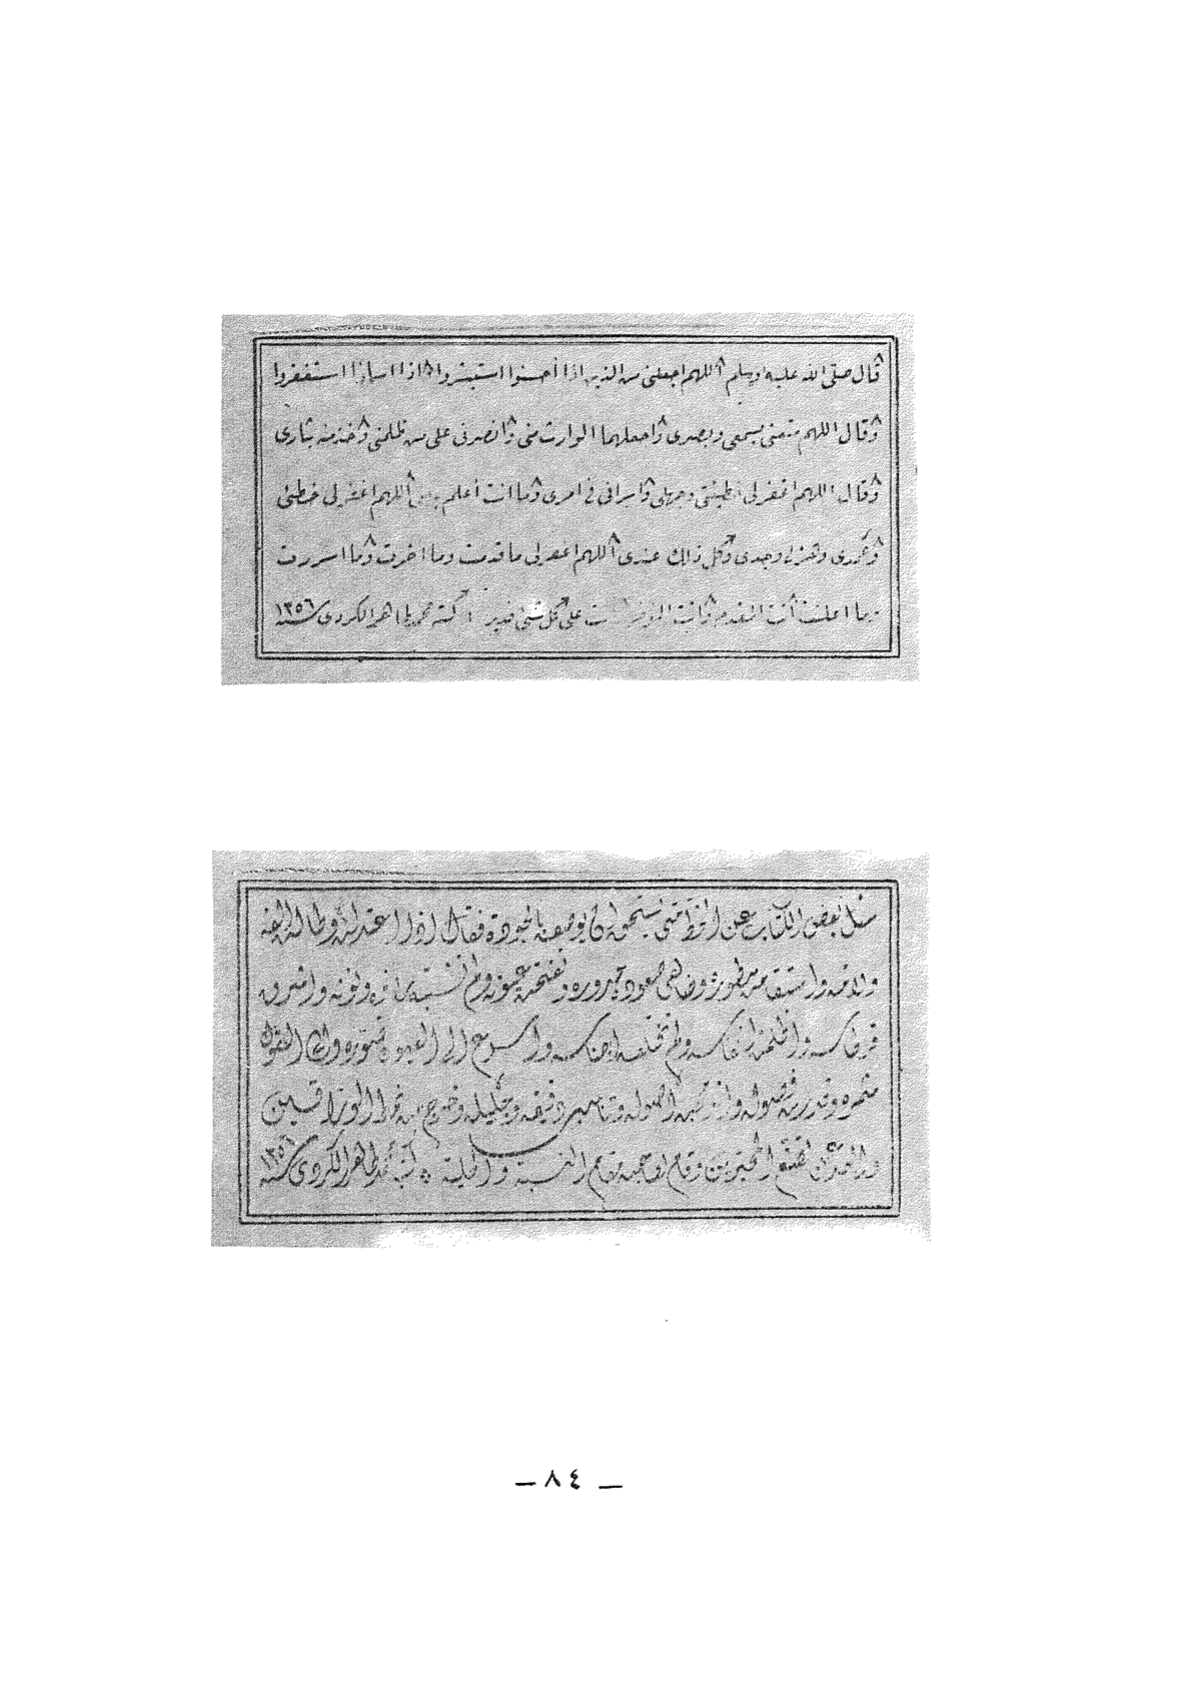 قال صلى الله عليه وسلم اللهم اجعلني من الذين اذا أحسنوا استبشروا واذا اساؤا استغفروا
وقال اللهم متعني بسمعي وبصري واجعلهما الوارث مني وانصرني على من ظلمني وخذ منه بثاري
وقال اللهم اغفر لي خطيئتي وجهلي واسرافي في امري وما انت أعلم به مني اللهم اغفر لي خطئي
وعمدي وهزلي وجدي وكل ذلك عندي اللهم اغفر لي ما قدمت وما اخرت وما اسررت
وما اعلنت أنت المقدم وانت المؤخر وانت على كل شئ قدير كتبه محمد طاهر الكردي سنة ١٣٥٦
سئل بعض الكتاب عن الخط متى يستحق ان يوصف بالجودة فقال اذا اعتدلت اقسامه وطالت الفه
ولامه واستقامت سطوره وضاهى صعوده حدوره وتفتحت عيونه ولم تشتبه راؤه ونونه واشرق
قرطاسه واظلمت انقاسه ولم تختلف اجناسه واسرع الى العيون تصوره والى العقول
ثمره وقدرت فصوله واندمجت اصوله وتناسب دقيقه وجليله وخرج من نمط الوراقين
وبعد عن تصنع المحبرين وقام لصاحبه مقام النسبة والحلية كتبه محمد طاهر الكردي سنة ١٣٥٦
— ٨٤ —